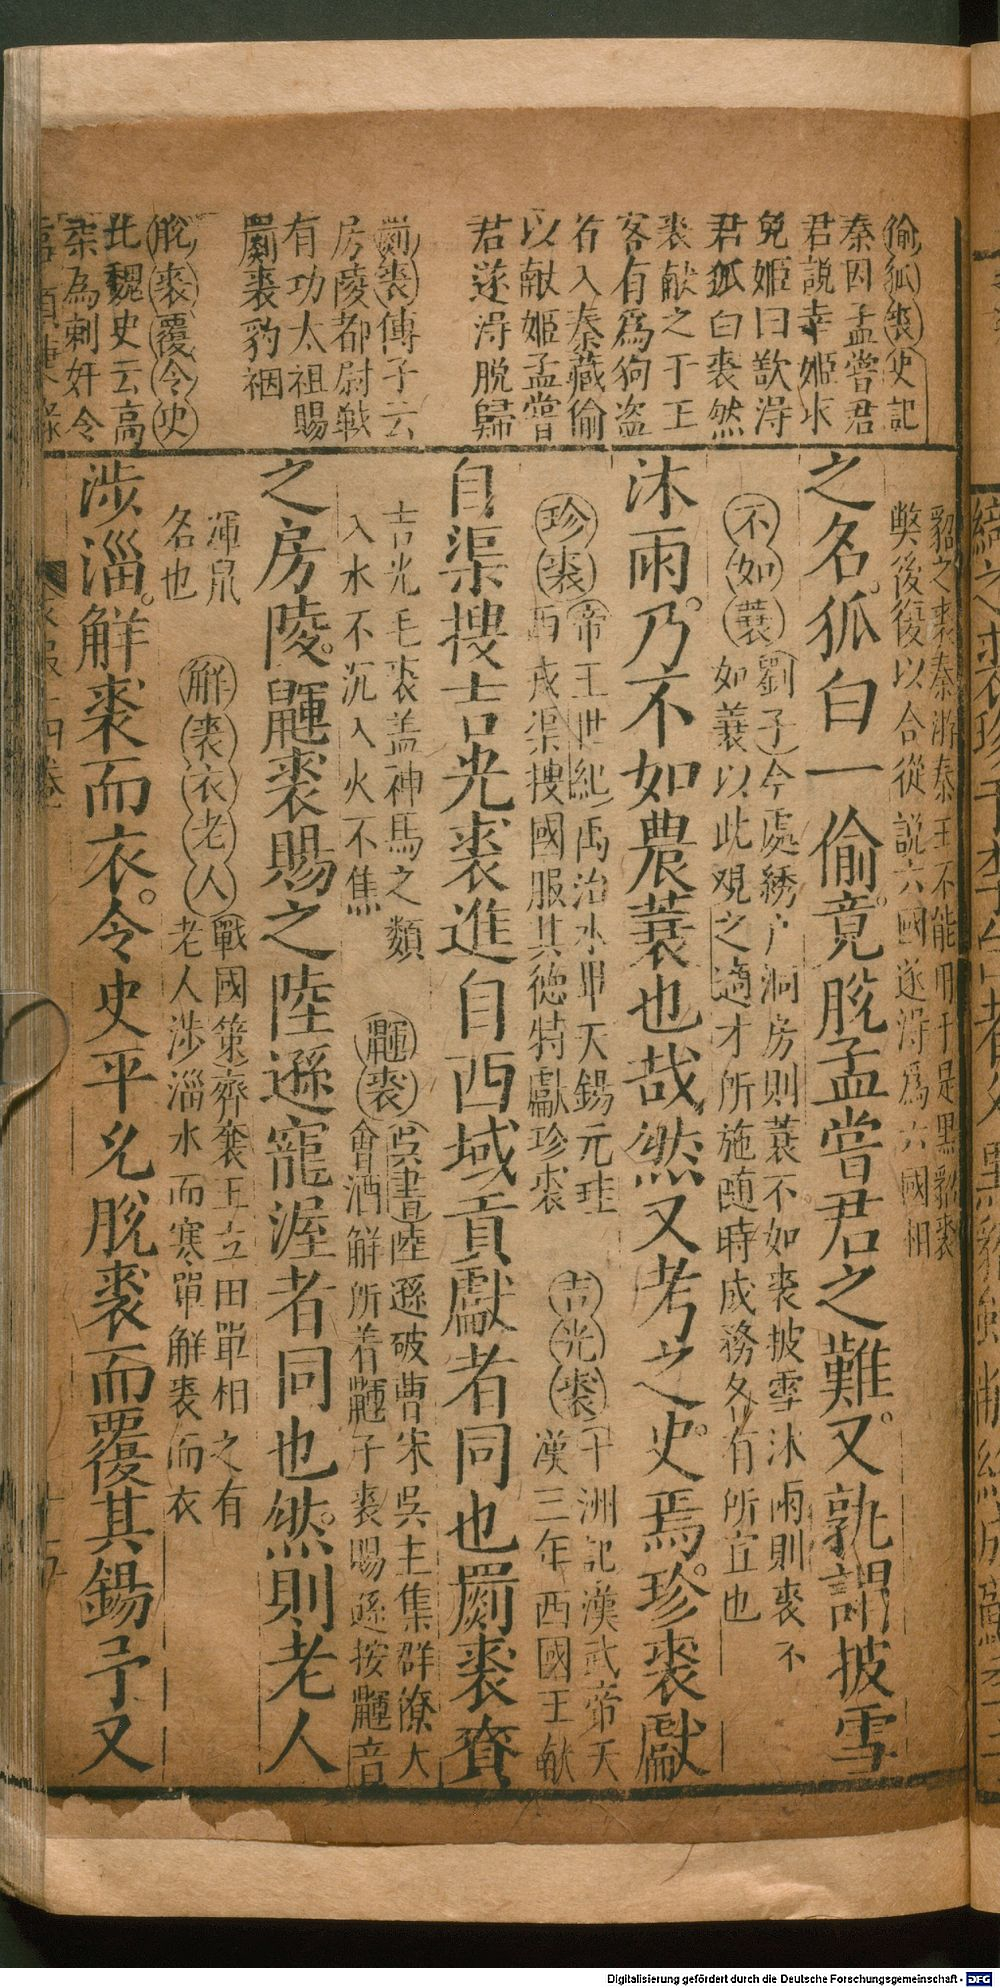 偷狐裘史記
秦囚孟嘗君
君說幸姬求
免姬曰歎得
君狐白裘然
裘献之于王
客有爲狗盗
者入秦藏偷
以献姬孟嘗
君遂得脱歸
罽裘傅子云
房陵都尉戰
有功太祖賜
罽裘豹裀
脫裘覆令史
北魏史云高
柔為刺奸令
貂之裘秦游秦王不能用于是黑貂裘
弊後復以合從説六國遂得爲六國相
之名。狐白一偷。竟脫孟嘗君之難。又孰謂披雪
不如蓑劉子今處綉户洞房則蓑不如裘披雪沐雨則裘不
如蓑以此觀之適才所施随時成務各有所宜也
沐雨。乃不如農蓑也哉。然又考之史焉。珍裘獻
珍裘帝王世紀禹治水畢天錫元珪
西戎渠搜國服其德特獻珍裘
吉光裘十洲記漢武帝天
漢三年西國王献
自渠搜吉光裘進自西域貢獻者同也罽裘賚
吉光毛裘盖神馬之類
入水不沉入火不焦
鼲裘吳書陸遜破曹宋吳主集群僚大
會酒觧所着鼲子裘賜遜按鼲音
之房陵。鼲裘賜之陸遜寵渥者同也。然則老人
渾鼠
名也
解裘衣老人戰國策齊襄王立田單相之有
老人涉淄水而寒單解裘而衣
涉淄。解裘而衣。令史平乆脫裘而覆其錫予又
Digitalisierung gefördert durch die Deutsche Forschungsgemeinschaft - DFG